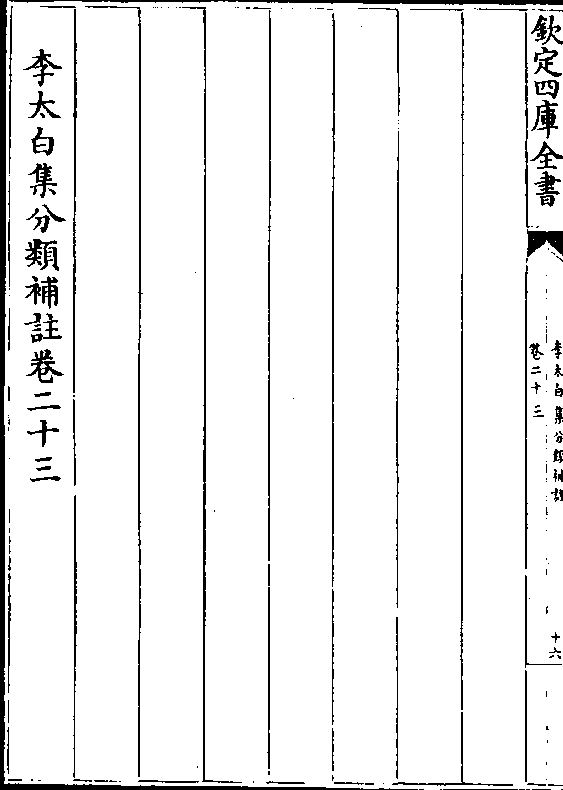 欽定四庫全書
李太白集分類補註
卷二十三
十六
李太白集分類補註卷二十三